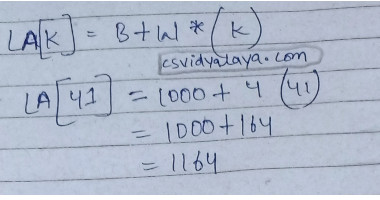 LA[K] = B + W * (K)
csvidyalaya.com
LA[41] = 1000 + 4 (41)
= 1000 + 164
= 1164